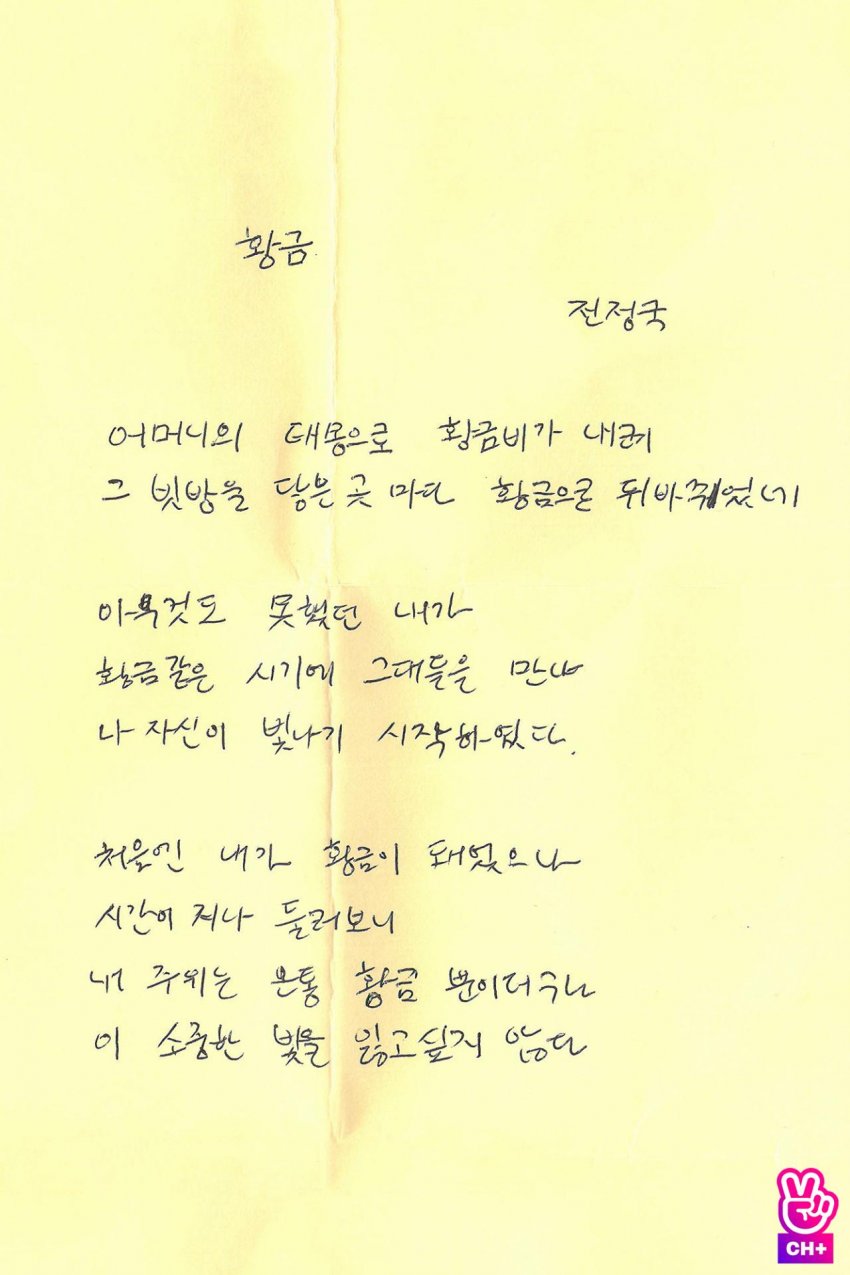 황금
전정국
어머니의 태몽으로 황금비가 내려
그 빗방울 닿은 곳 마다 황금으로 뒤바뀌었네
아무것도 못했던 내가
황금같은 시기에 그대들을 만나
나 자신이 빛나기 시작하였다.
처음엔 내가 황금이 돼었으나
시간이 지나 둘러보니
내 주위는 온통 황금 뿐이더구나
이 소중한 빛을 잃고싶지 않다
CH+